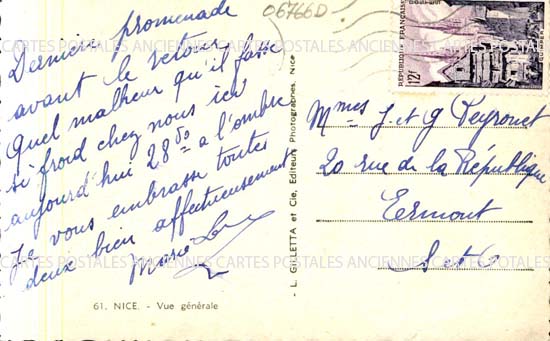 Dernière promenade
avant le retour
Quel malheur qu'il fasse
si froid chez nous ici
aujourd'hui 28° a l'ombre
Je vous embrasse toutes
deux bien affectueusement
Marie
61. NICE. - Vue générale
- L. GILLETTA et Cie, Editeurs Photographes, Nice
06766D
RÉPUBLIQUE FRANÇAISE
12F
Mmes J. et G Peyronet
20 rue de la République
Ermont
S et O
CARTES POSTALES ANCIENNES CARTES POSTALES ANCIENNES CARTES POSTALES
CARTES POSTALES ANCIENNES CARTES POSTALES ANCIENNES